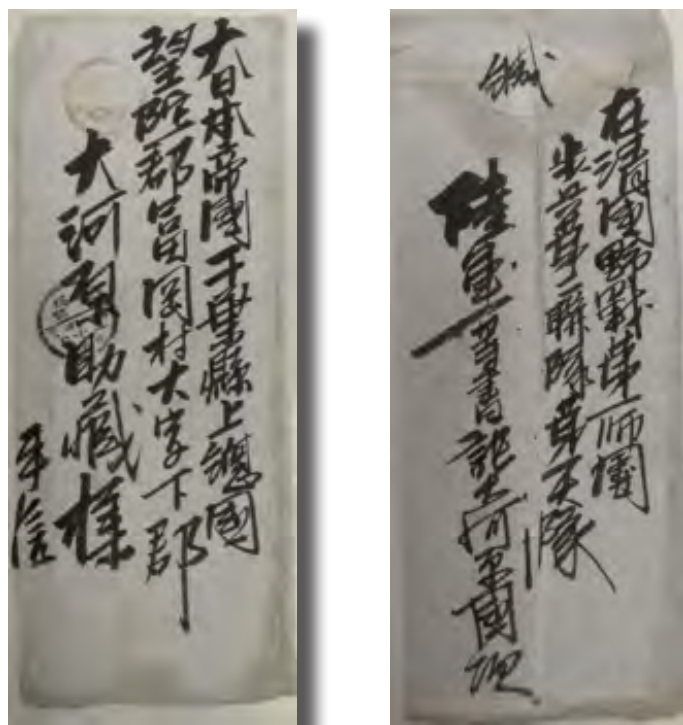 大日本帝國千葉縣上總國
望陀郡富岡村大字下郡
大河原助藏様
平信
緘
在清國野戰第一師團
歩兵第二聯隊第 隊
陸軍一等書記大河原